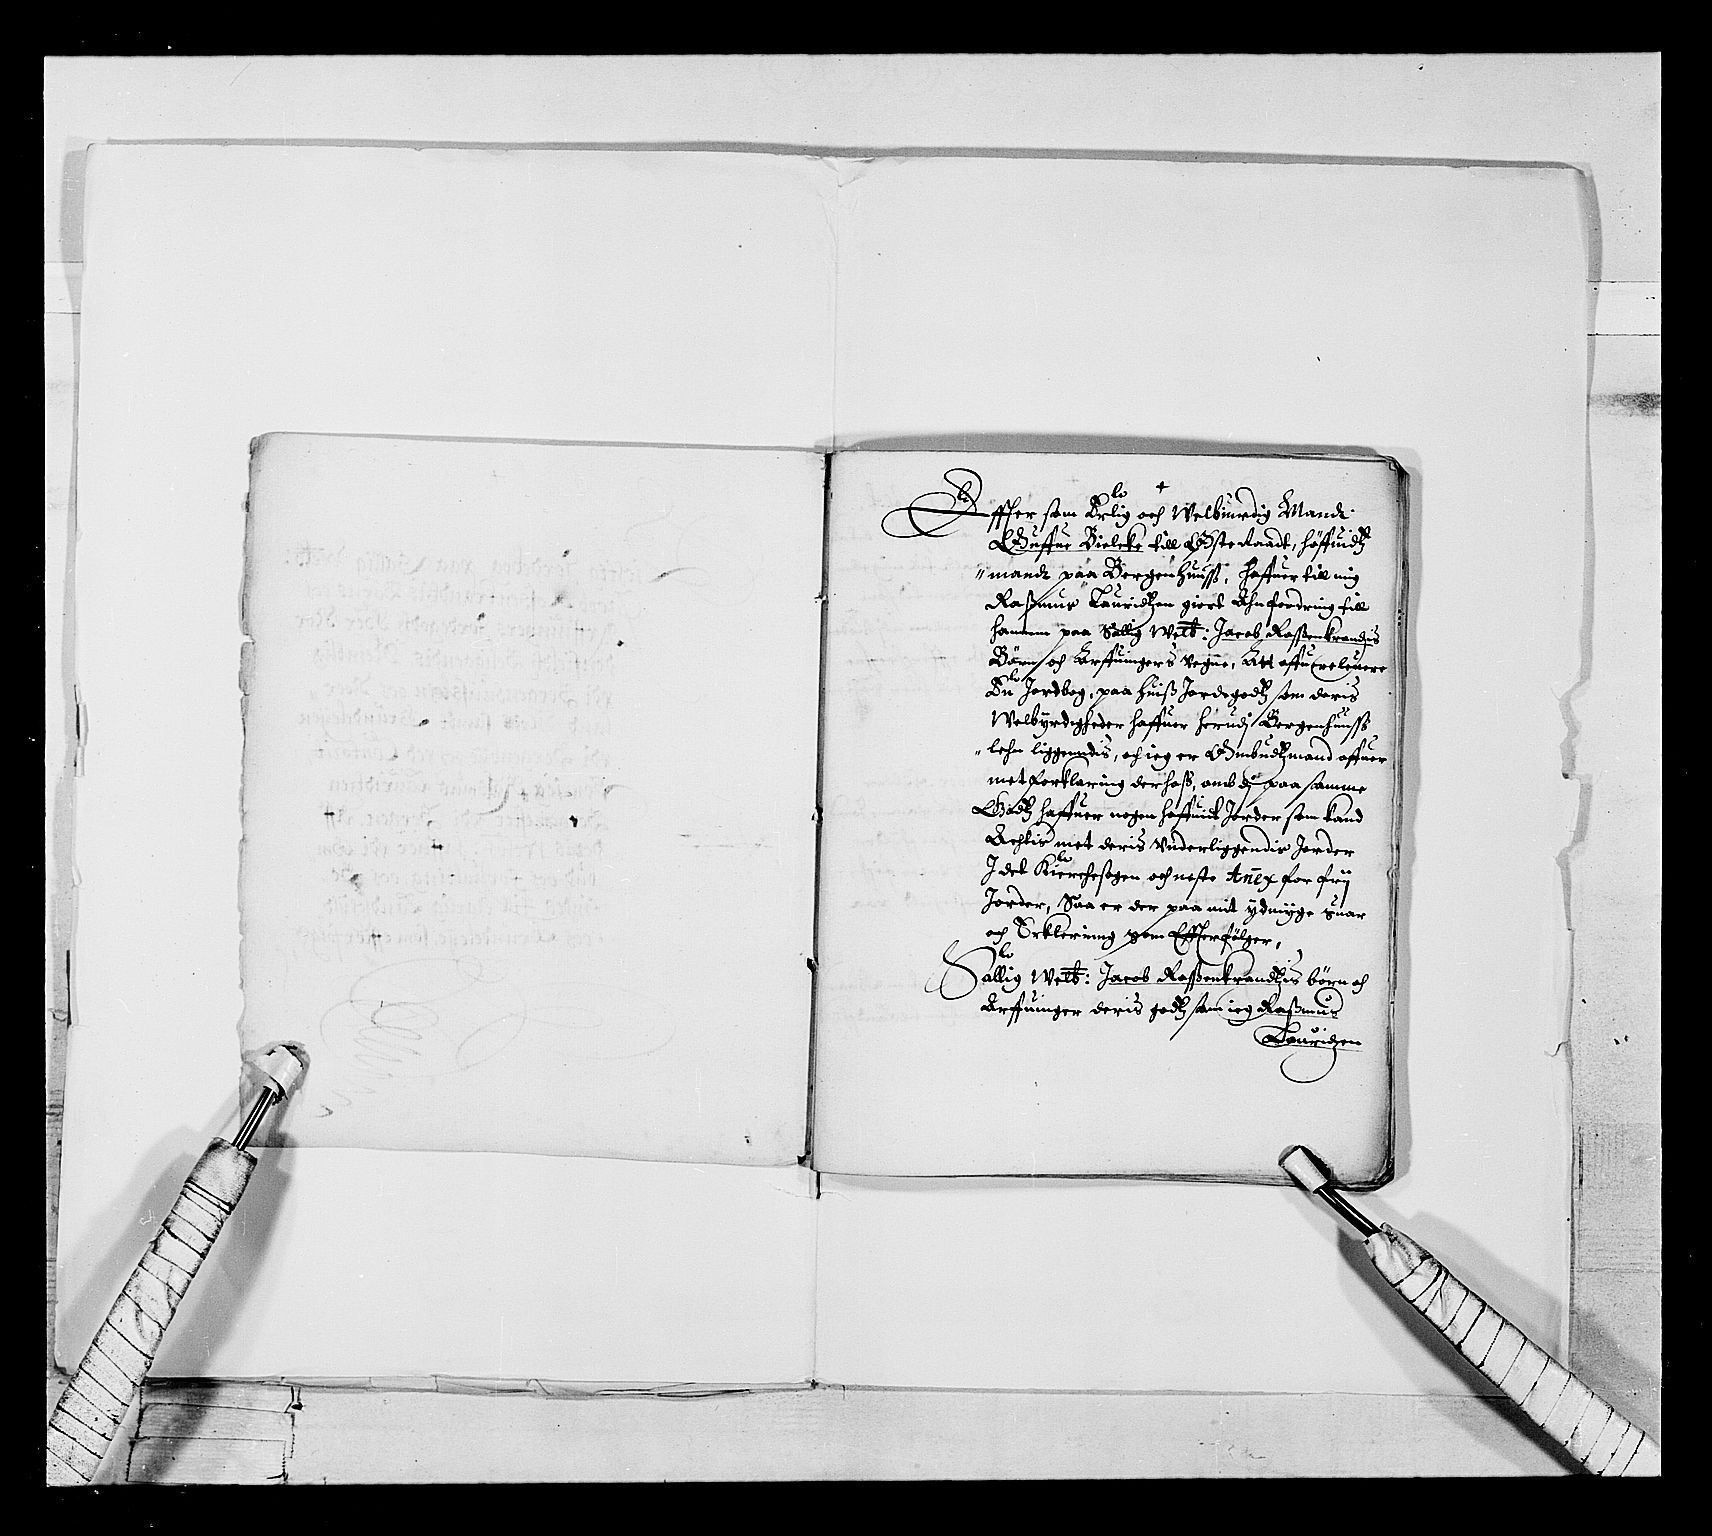 Effter som Erlig och Welbiurdig Mandt
Offue Bielcke till Østeraadt, höffuidtz
mandt paa Bergenhuuss, haffuer till mig
Rassmus Lauridtzen giort Ahnfordring till
hannem paa Sallig Welb: Jacob Rossenkrandtzis
Börn och Arffuingers vegne, Att offuerleuere
En Jordbog, paa huiss Jordegodtz som deris
Welbyrdigheder haffuer herudj Bergenhuuss
lehn liggendis, och ieg er Ombudtzmand offuer
met forklaring derhoss, omb dj paa samme
Godtz haffuer nogen hoffuit Jorder som kand
Achtis met deris Underliggendis Jorder
J det Kierchesogen och neste Anex for frij
Jorder, Saa er der paa mit ydmyge suar
och Erklering som Effterfölger,
Sallig Welb: Jacob Rossenkrandtzis börn och
Arffuinger deris godtz som ieg Rassmus
Lauridtzen